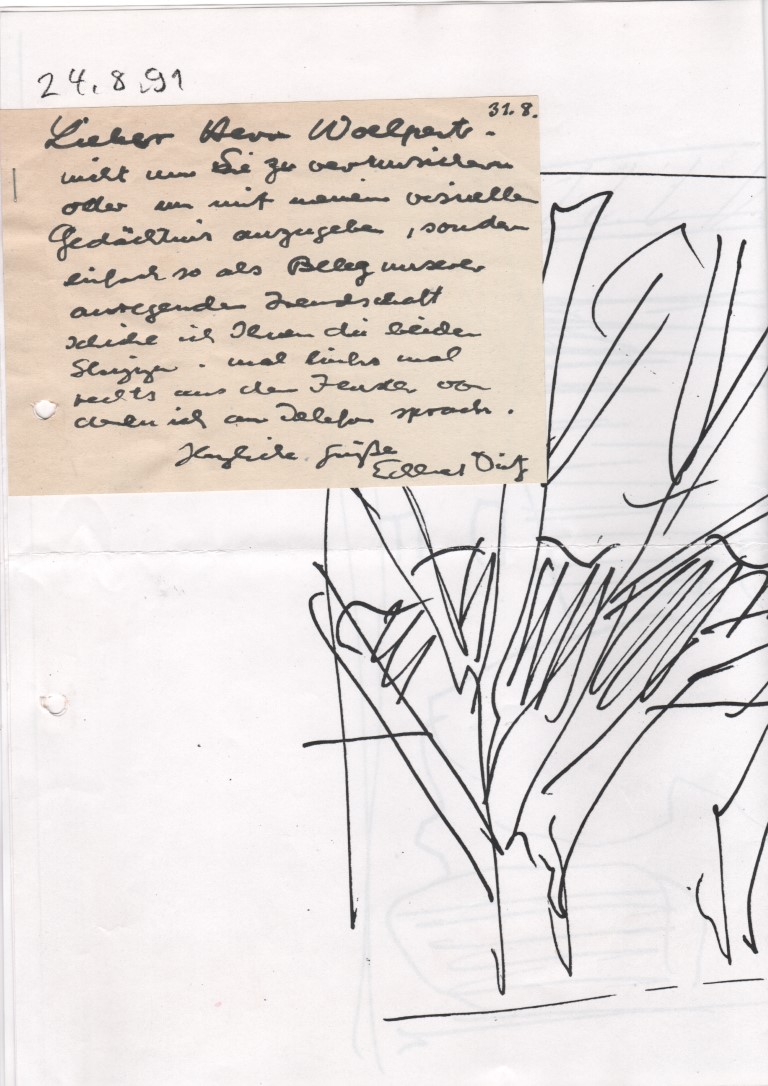 24.8.91
31.8.
Lieber Herr Woelpert.
nicht um Sie zu verunsichern
oder um mit meinem visuellen
Gedächtnis anzugeben, sondern
einfach so als Beleg unserer
anregenden Freundschaft
schicke ich Ihnen die beiden
Skizzen. mal links mal
rechts aus dem Fenster von
denen ich am Telefon sprach.
Herzliche Grüße